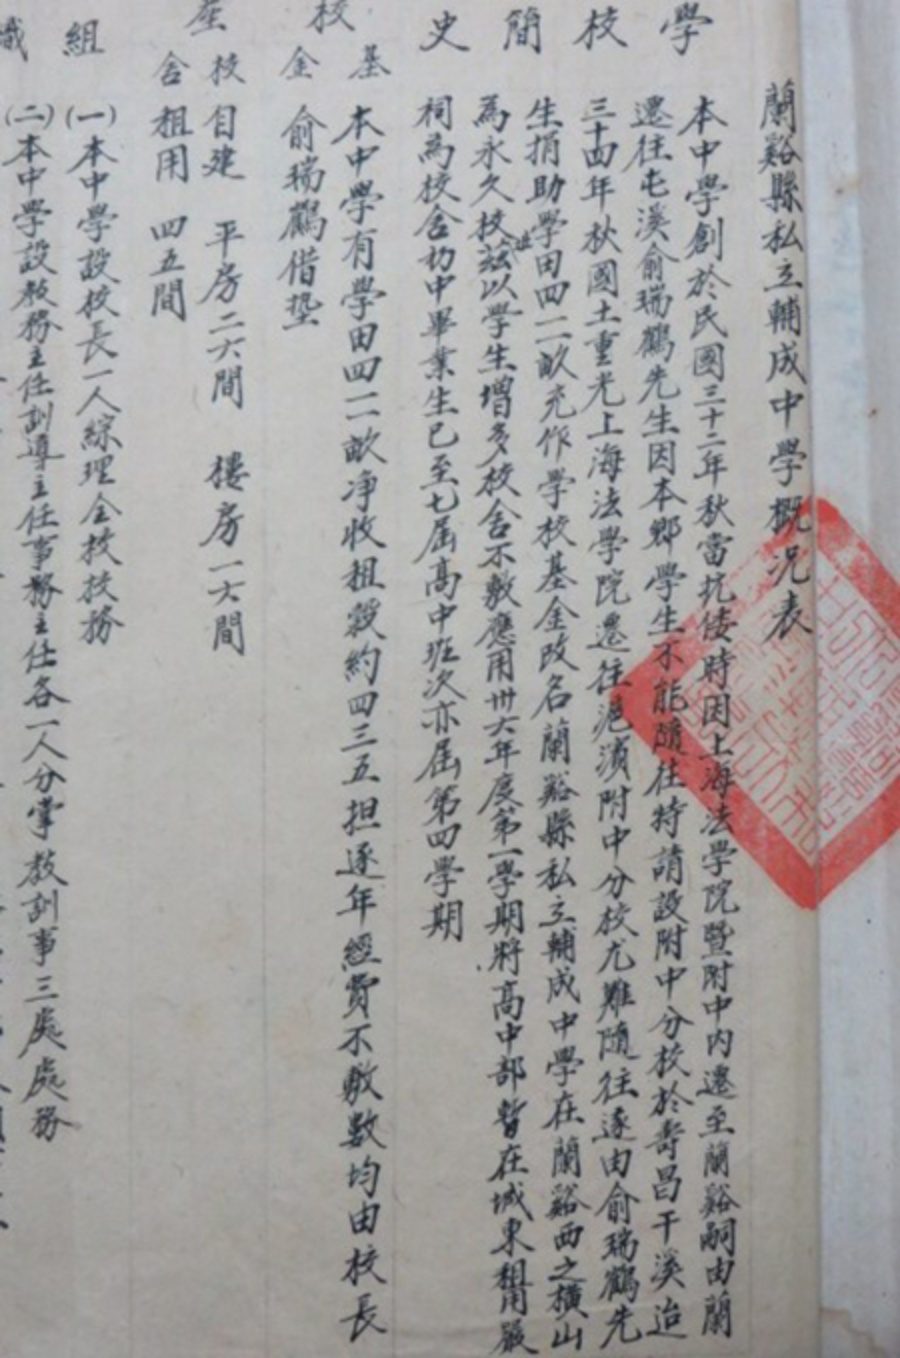 蘭谿縣私立輔成中學概況表
學校簡史
本中學創於民國三十二年秋當抗倭時因上海法學院暨附中內遷至蘭谿嗣由蘭
遷往屯溪俞瑞鶴先生因本鄉學生不能隨往特請設附中分校於壽昌干溪迨
三十四年秋國土重光上海法學院遷往滬濱附中分校尤難隨往遂由俞瑞鶴先
生捐助學田四一二畝充作學校基金改名蘭谿縣私立輔成中學在蘭谿西之橫山
為永久校址茲以學生增多校舍不敷應用卅六年度第一學期將高中部暫在城東租用嚴
祠為校舍初中畢業生已至七屆高中班次亦屆第四學期
校產
基金
本中學有學田四一二畝净收租穀約四三五担逐年經費不敷數均由校長
俞瑞鶴借垫
校舍
自建 平房二六間 樓房一六間
租用 四五間
組織
(一)本中學設校長一人綜理全校校務
(二)本中學設教務主任訓導主任事務主任各一人分掌教訓事三處處務